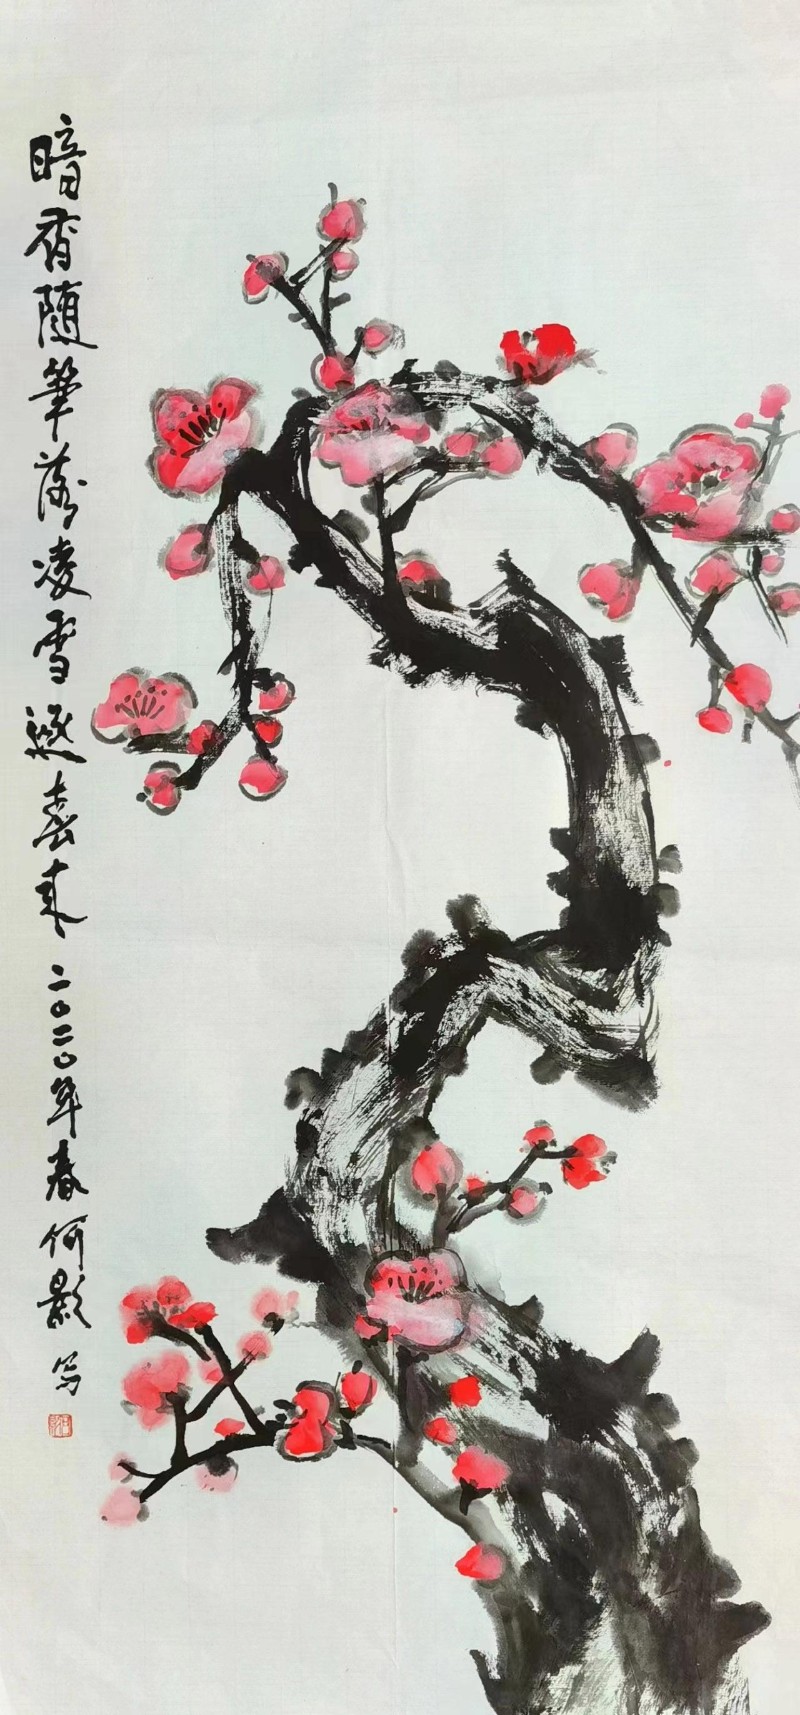 暗香随笔落凌雪逐春来 二〇二〇年春 何影 写